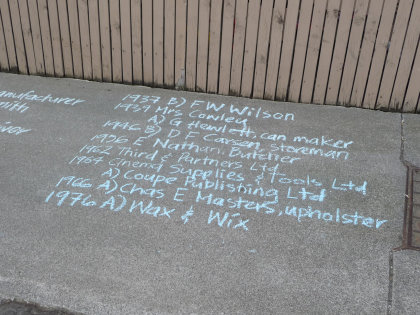 anufacturer
1937 B) F W Wilson
1939 Mrs Cowley
A) G Hewlett, can maker
1946 B) D E Carson, storeman
1956 E Nathan, Butcher
1962 Third & Partners Ltd
1967 Cinema Supplies & Tools Ltd
A) Coupe Publishing Ltd
1966 A) Chas E Masters, upholster
1976 A) Wax & Wix